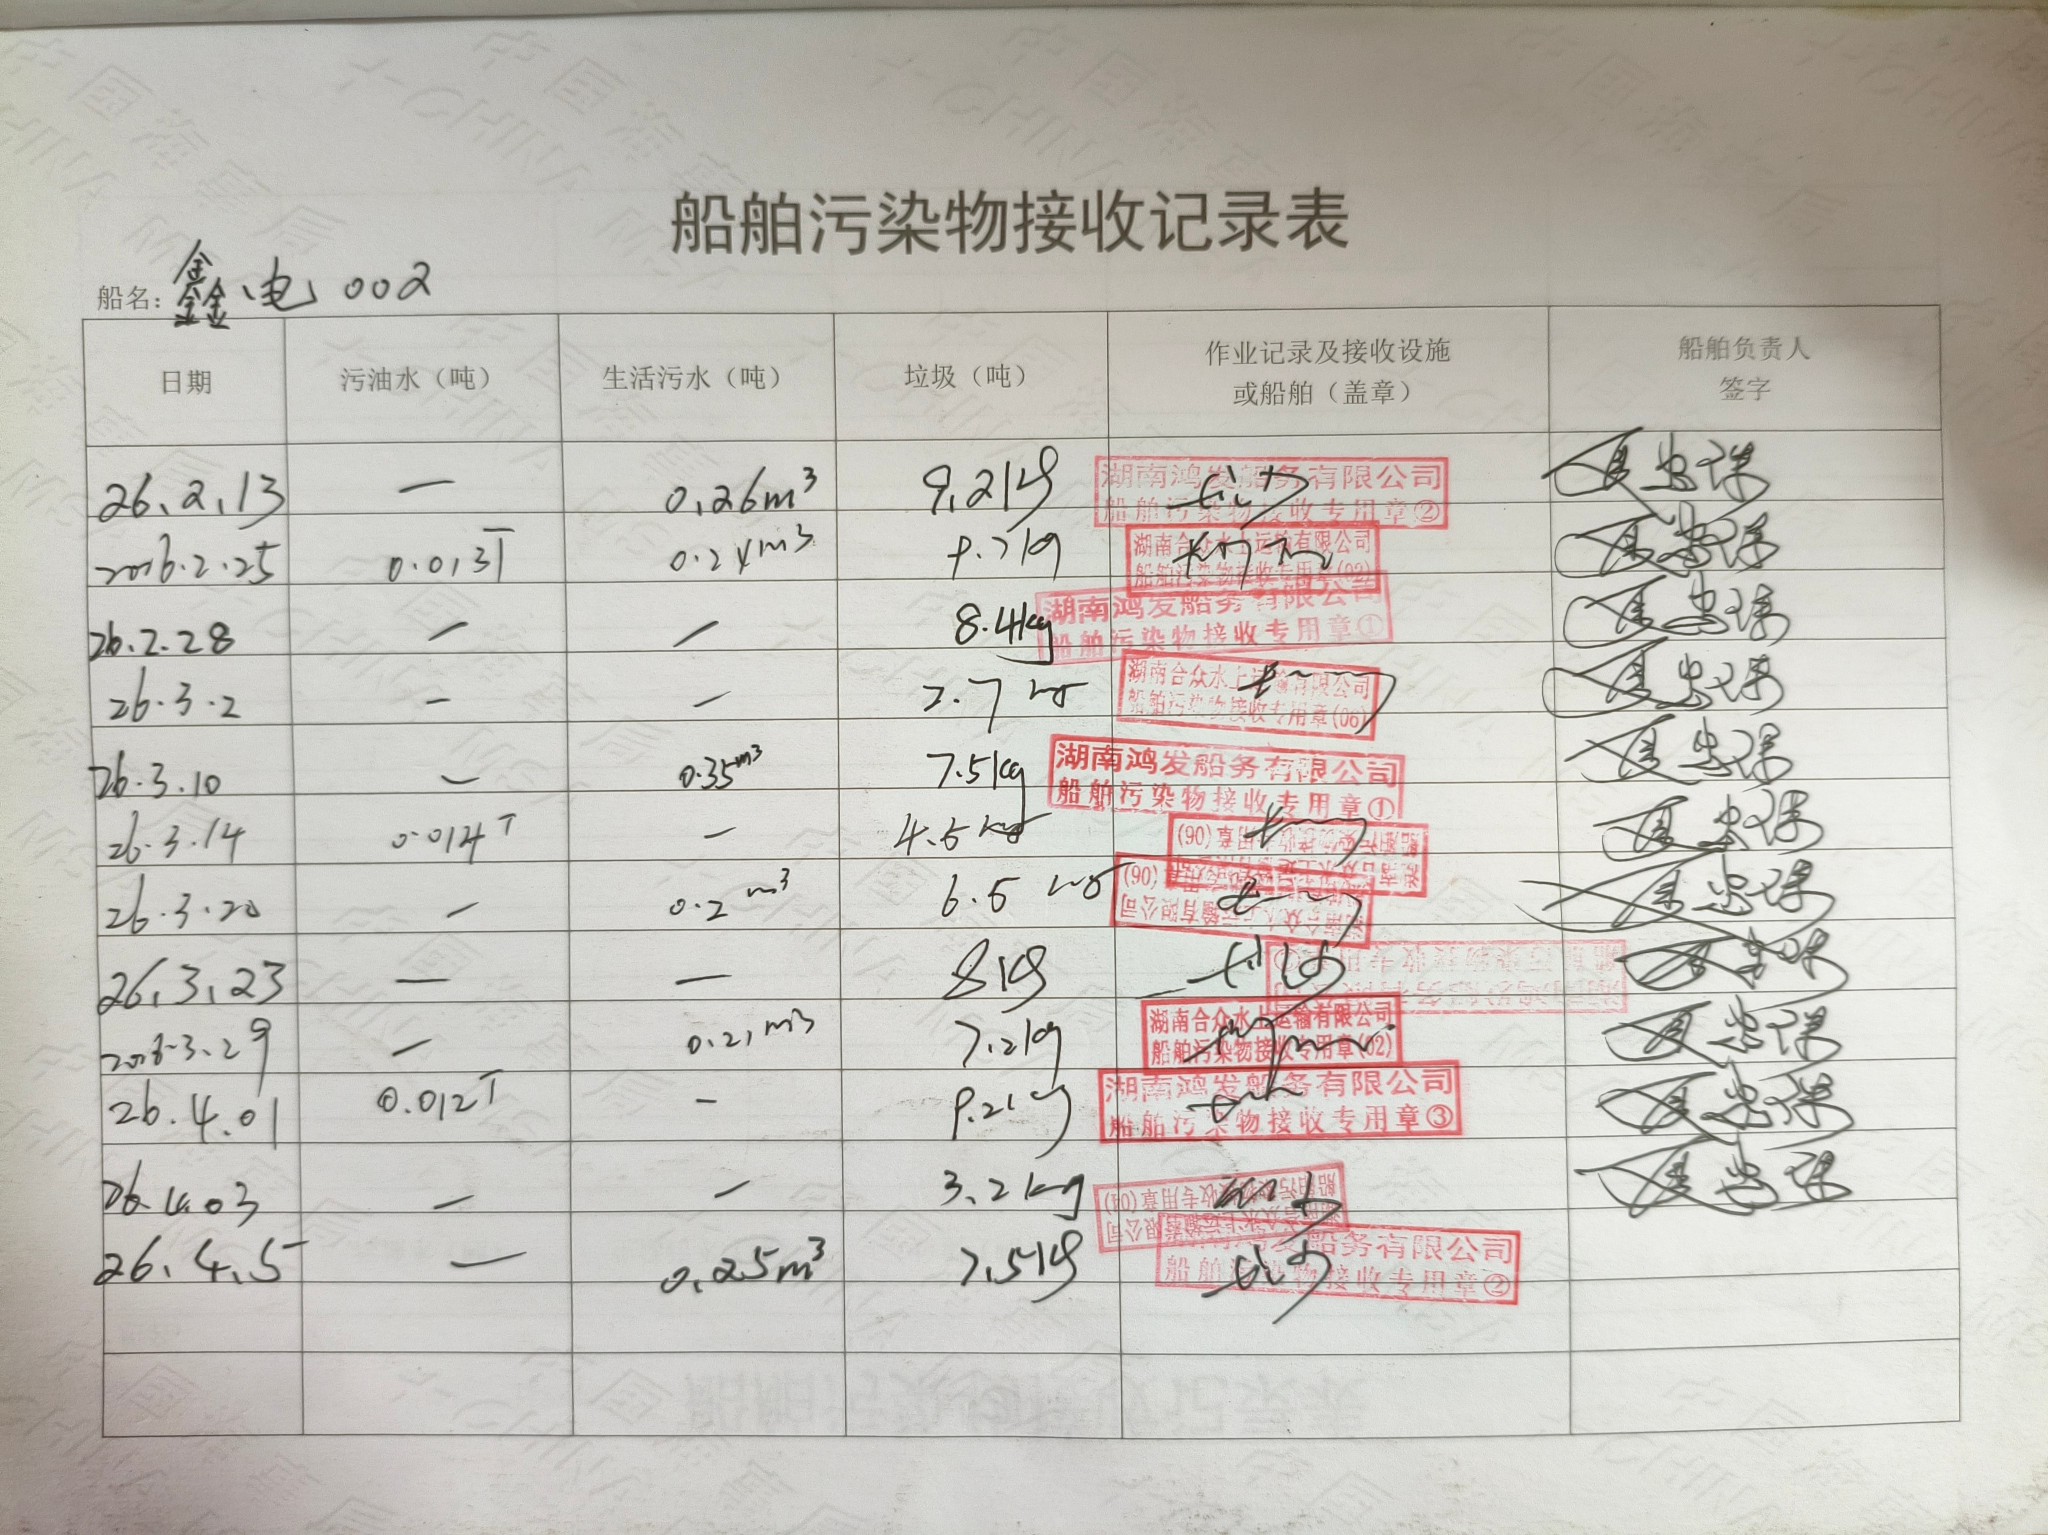 船舶污染物接收记录表
船名: 鑫电 002
日期 污油水（吨） 生活污水（吨） 垃圾（吨） 作业记录及接收设施或船舶（盖章） 船舶负责人签字
26.2.13 — 0.26m³ 9.2kg 湖南鸿发船务有限公司 船舶污染物接收专用章②
2026.2.25 0.013T 0.24m³ 9.7kg 湖南合众水上运输有限公司 船舶污染物接收专用章(02)
26.2.28 — — 8.4kg 湖南鸿发船务有限公司 船舶污染物接收专用章①
26.3.2 — — 2.7kg 湖南合众水上运输有限公司 船舶污染物接收专用章(06)
26.3.10 — 0.35m³ 7.5kg 湖南鸿发船务有限公司 船舶污染物接收专用章①
26.3.14 0.014T — 4.5kg 船舶污染物接收专用章(06)
26.3.20 — 0.2m³ 6.5kg 湖南合众水上运输有限公司 船舶污染物接收专用章(06)
26.3.23 — — 8kg
2026.3.29 — 0.21m³ 7.2kg 湖南合众水上运输有限公司 船舶污染物接收专用章(02)
26.4.01 0.012T — 9.2kg 湖南鸿发船务有限公司 船舶污染物接收专用章③
26.4.03 — — 3.2kg
26.4.5 — 0.25m³ 7.5kg 船务有限公司 船舶污染物接收专用章②